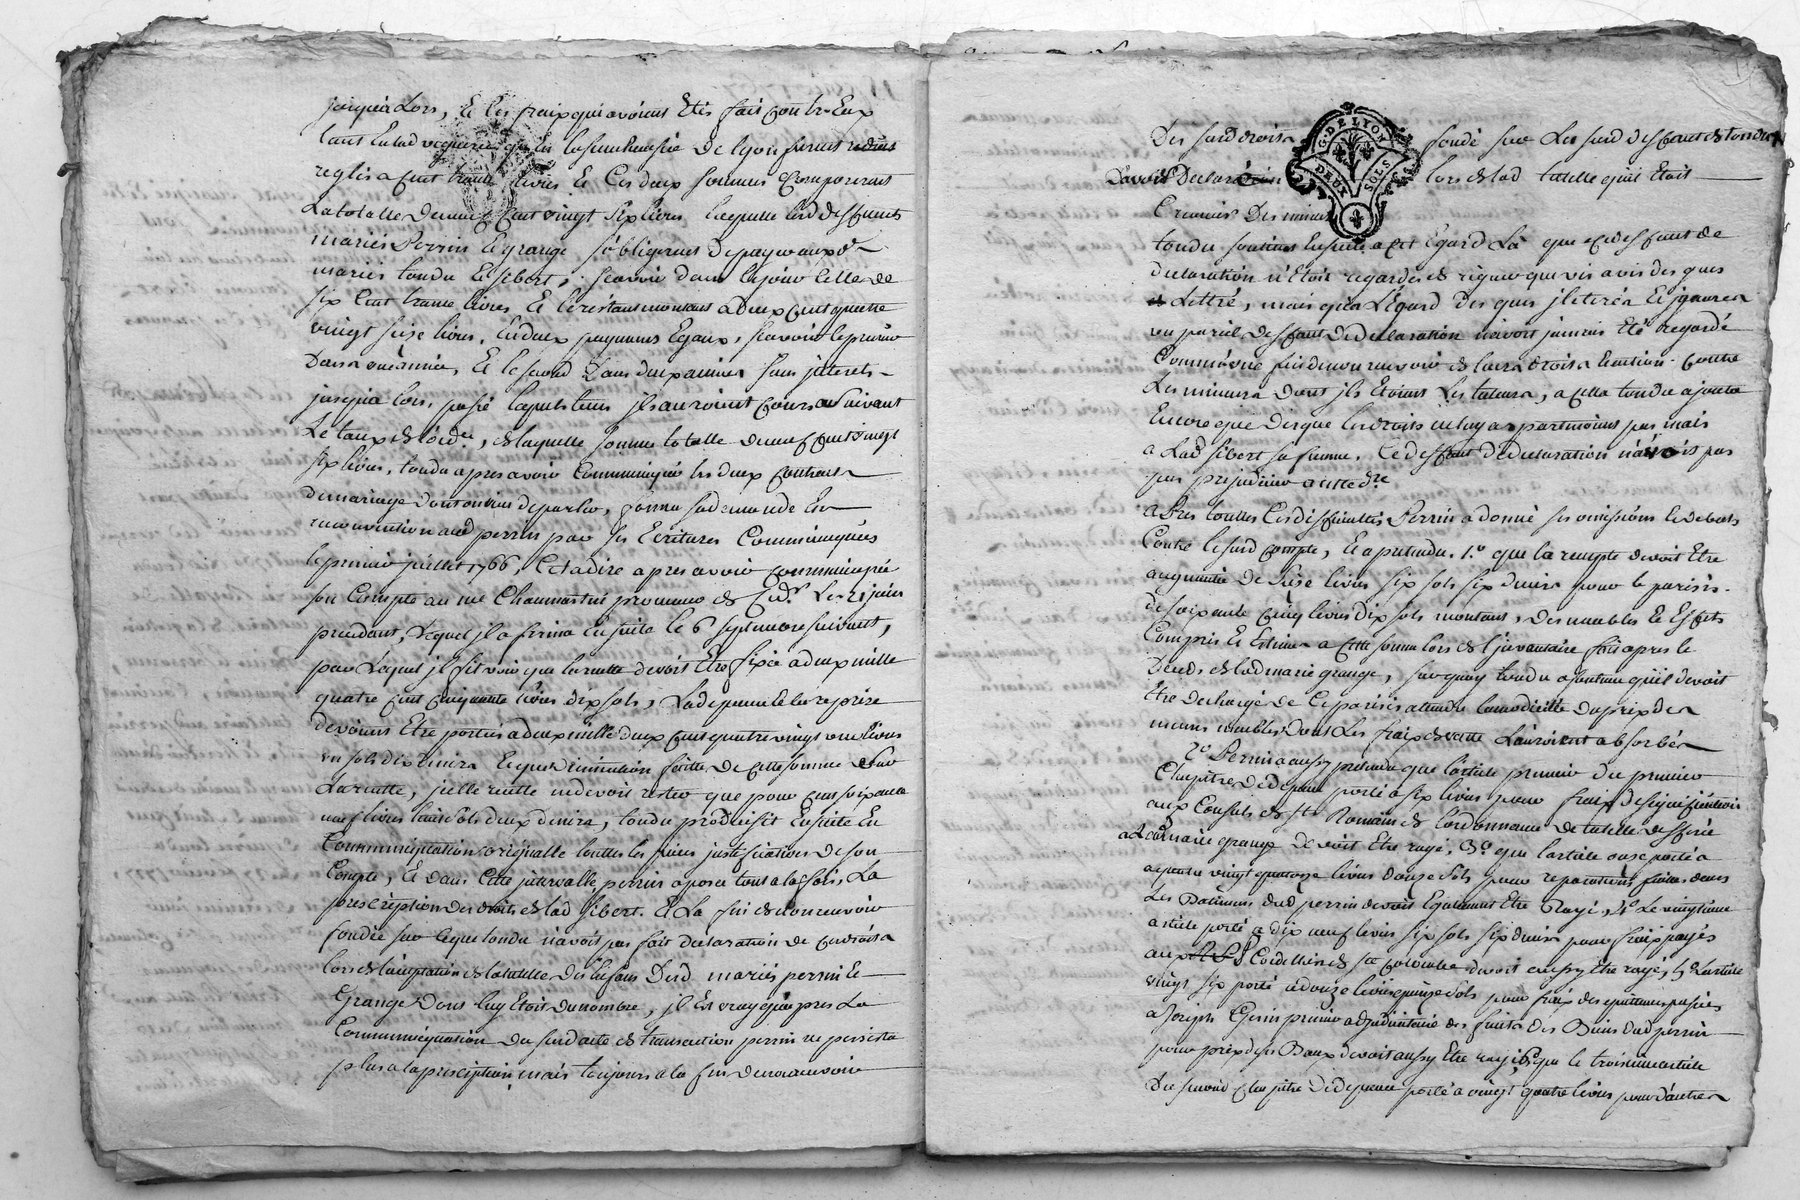 jusqu'a Lors, Et les fraix qui avoient Etés fait Contr-Eux
tant En lad vigueries qu'en la senechaussée de lyon furent reduits
reglés a Cent trente livres Et Ces deux sommes Composerent
La totalle de neuf Cent vingt six livres laquelle lesd deffunts
mariés Perrin Et grange s'obligerent de payer aux d.
mariés tondu Et sibert, scavoir dans le jour celle de
six Cent trente livres Et le restant montant a deux Cent quatre
vingt seize livres, En deux payemens Egaux, scavoir le premier
Dans une année, Et le second dans deux années sans interets
jusqu'a lors, passé lequel tems ils auroient Cours au suivant
Le taux de l'ord.ce, de laquelle somme totalle de neuf Cent vingt
six livres, tondu apres avoir Communiqué les deux Contrats
de mariage dont on vient de parler, forma sa demande En
reconvention aud perrin par ses Ecritures Communiquées
le premier juillet 1766, C'est a dire apres avoir Communiqué
son Compte au me Chaumartin procureur de le 21 juin
precedant, Lequel il afirma Ensuite le 6 septembre suivant,
par Lequel il fit voir que la recette devoit Etre fixée a deux mille
quatre Cent Cinquante livres dix sols, La depense Et la reprise
devoient Etre portées a deux mille deux Cent quatre vingt une livres
un sols dix deniers Et que deduction faitte de Cette somme sur
La recette, jcelle recette ne devoit rester que pour Cent soixante
neuf livres huit sols deux deniers, tondu produisit Ensuite En
Communiquation originalle touttes les pieces justificatives de son
Compte, Et dans Cette jntervalle perrin aposa tout a la fois, La
prescription des droits de lad sibert. Et La fin de nonrecevoir
fondée sur Ce que tondu n'avoit pas fait declaration de Ces droits
lors de l'acceptation de la tutelle des Enfans Desd mariés perrin Et
Grange dont luy Etoit du nombre, il Est vray qu'apres La
Communiquation du susd acte de transaction perrin ne persista
plus a la prescription, mais toujours a la fin de nonrecevoir
Des susd droits fondé sur Le susd deffaut de tondu
D'avoir Declaré lors de lad tutelle qu'il Etoit
Creancier Des mineurs
tondu soutint Ensuite a Cet Egard La que Ce deffaut de
declaration n'Etoit regardé de rigueur que vis a vis des gens
Lettré, mais qu'a L'Egard des gens jlleterés Et jgnares
un pareil deffaut de declaration n'avoit jamais Eté regardé
Comme une fin de non recevoir de leurs droits Et actions Contre
Les mineurs dont ils Etoient Les tuteurs, a Cella tondu ajouta
Encore que Des que les droits ne luy appartenoient pas mais
a Lad sibert sa femme, Ce deffaut de declaration n'avoit pas
pu prejudicier a cette d.re
aPres touttes Ces difficultés Perrin a donné ses omissions Et debats
Contre le susd Compte, Et a pretendu. 1.º que la recepte devoit Etre
augmentée de Seize livres six sols six deniers pour le parisis
de soixante Cinq livres dix sols montant, des meubles Et Effets
Compris Et Estimés a Cette somme lors de l'jnventaire fait apres le
Decès de lad marie grange, sur quoy tondu a soutenu qu'il devoit
Etre dechargé de Ce parisis attendu la modicitté du prix des
menus meubles Dont Les fraix de vente L'auroient absorbés
2.º Perrin a aussy pretendu que l'article premier du premier
Chapitre de depense porté a six livres pour fraix de signification
aux Consuls de St Romain de l'ordonnance de tutelle defferée
a Lad marie grange devoit Etre rayé. 3.º que l'article onze porté a
quatre vingt quatorze livres douze sols pour reparations faites dans
Les Batimens dud perrin devoit Egalement Etre Rayé, 4.º Le vingtieme
article porté a dix neuf livres six sols six deniers pour fraix payés
aux Cordelliers de Ste Colombe devoit aussy Etre rayé, 5.º L'article
vingt six porté a douze livres quinze sols pour fraix des quittances passées
a Joseph premier adjudicataire des fruits des Biens dud perrin
pour prix de ses Baux devoit aussy Etre rayé, 6.º que le troisieme article
Du second Chapitre de depense porté a vingt quatre livres pour d'autres
G. DE LYON
DEUX SOLS